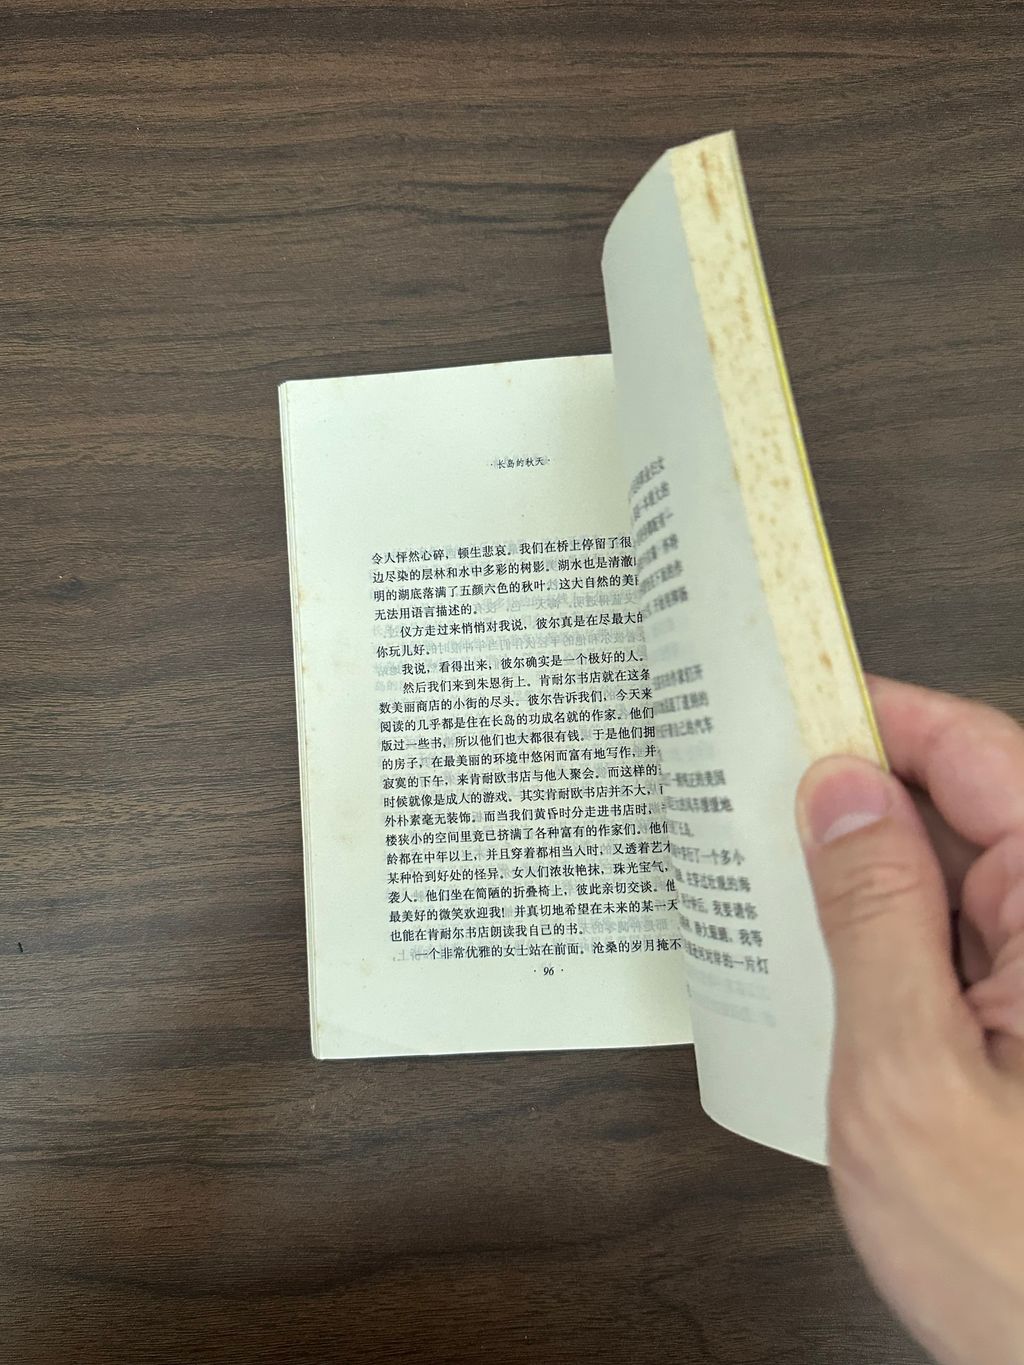 ·长岛的秋天·
令人怦然心碎，顿生悲哀。我们在桥上停留了很
边尽染的层林和水中多彩的树影。湖水也是清澈
明的湖底落满了五颜六色的秋叶。这大自然的美
无法用语言描述的。
仪方走过来悄悄对我说，彼尔真是在尽最大的
你玩儿好。
我说，看得出来，彼尔确实是一个极好的人。
然后我们来到朱恩街上。肯耐尔书店就在这条
数美丽商店的小街的尽头。彼尔告诉我们，今天来
阅读的几乎都是住在长岛的功成名就的作家。他们
版过一些书，所以他们也大都很有钱。于是他们拥
的房子，在最美丽的环境中悠闲而富有地写作，并
寂寞的下午，来肯耐欧书店与他人聚会。而这样的
时候就像是成人的游戏。其实肯耐欧书店并不大，
外朴素毫无装饰。而当我们黄昏时分走进书店时，
楼狭小的空间里竟已挤满了各种富有的作家们。他们
龄都在中年以上，并且穿着都相当人时，又透着艺术
某种恰到好处的怪异。女人们浓妆艳抹，珠光宝气，
袭人。他们坐在简陋的折叠椅上，彼此亲切交谈。他
最美好的微笑欢迎我！并真切地希望在未来的某一天
也能在肯耐尔书店朗读我自己的书。
一个非常优雅的女士站在前面。沧桑的岁月掩不
·96·
作家们开
自己的汽车
一辆纯正的美国
风车缓缓地
了长岛。
中穿行了一个多小
我要请你
我等
对岸的一片灯